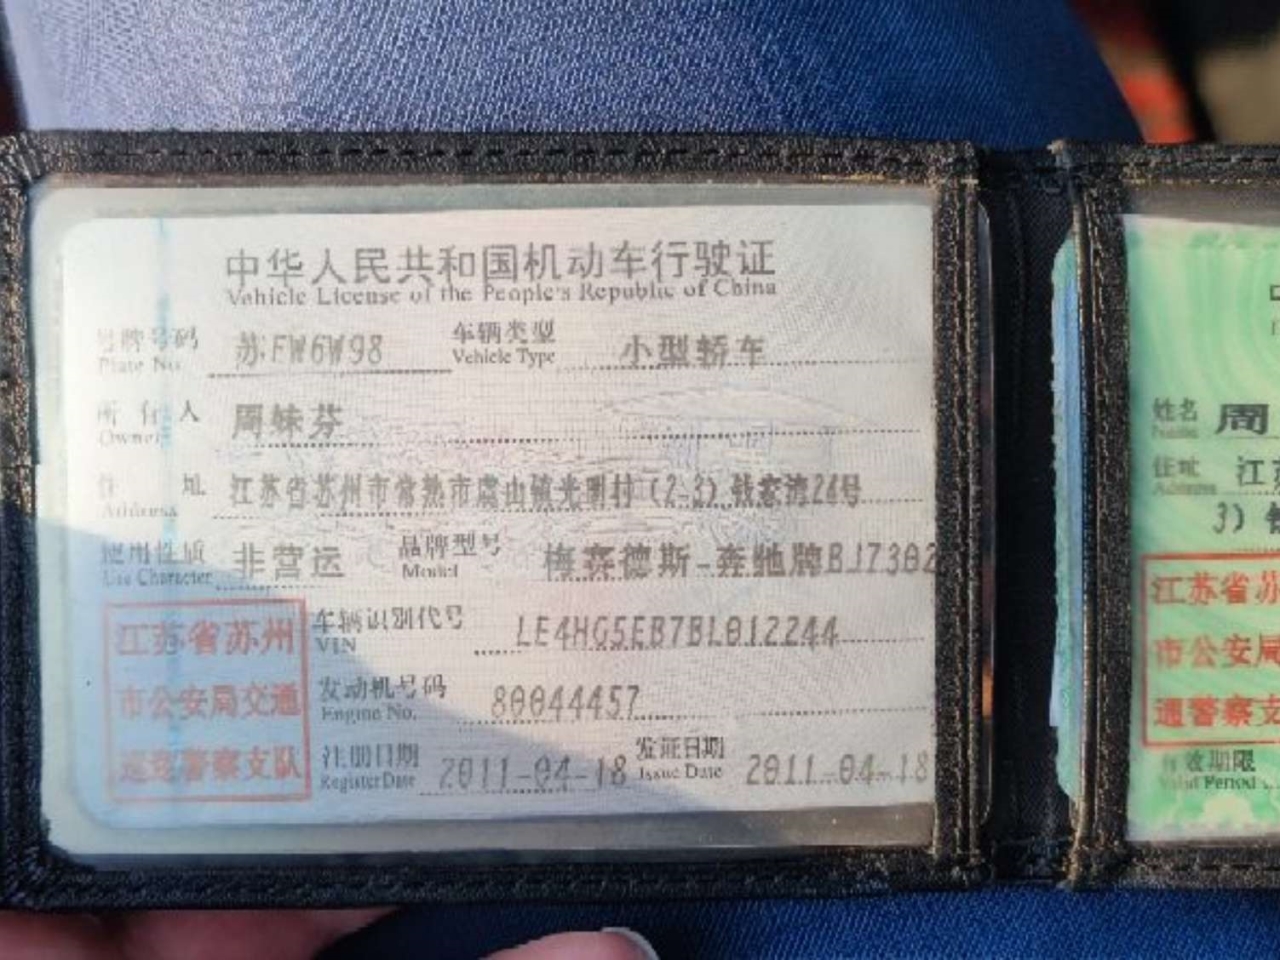 中华人民共和国机动车行驶证
Vehicle License of the People's Republic of China
号牌号码 苏FW6W98 车辆类型 小型轿车
Plate No. Vehicle Type
所有人 周妹芬
Owner
住址 江苏省苏州市常熟市虞山镇光明村(2-3)钱家湾24号
Address
使用性质 非营运 品牌型号 梅赛德斯-奔驰牌BJ7302
Use Character Model
江苏省苏州
市公安局交通
巡逻警察支队
车辆识别代号 LE4HG5EB7BL012244
VIN
发动机号码 80044457
Engine No.
注册日期 2011-04-18 发证日期 2011-04-18
Register Date Issue Date
姓名 周
Name
住址 江苏
Address
3)
江苏省苏
市公安局
通警察支
有效期限
Valid Period